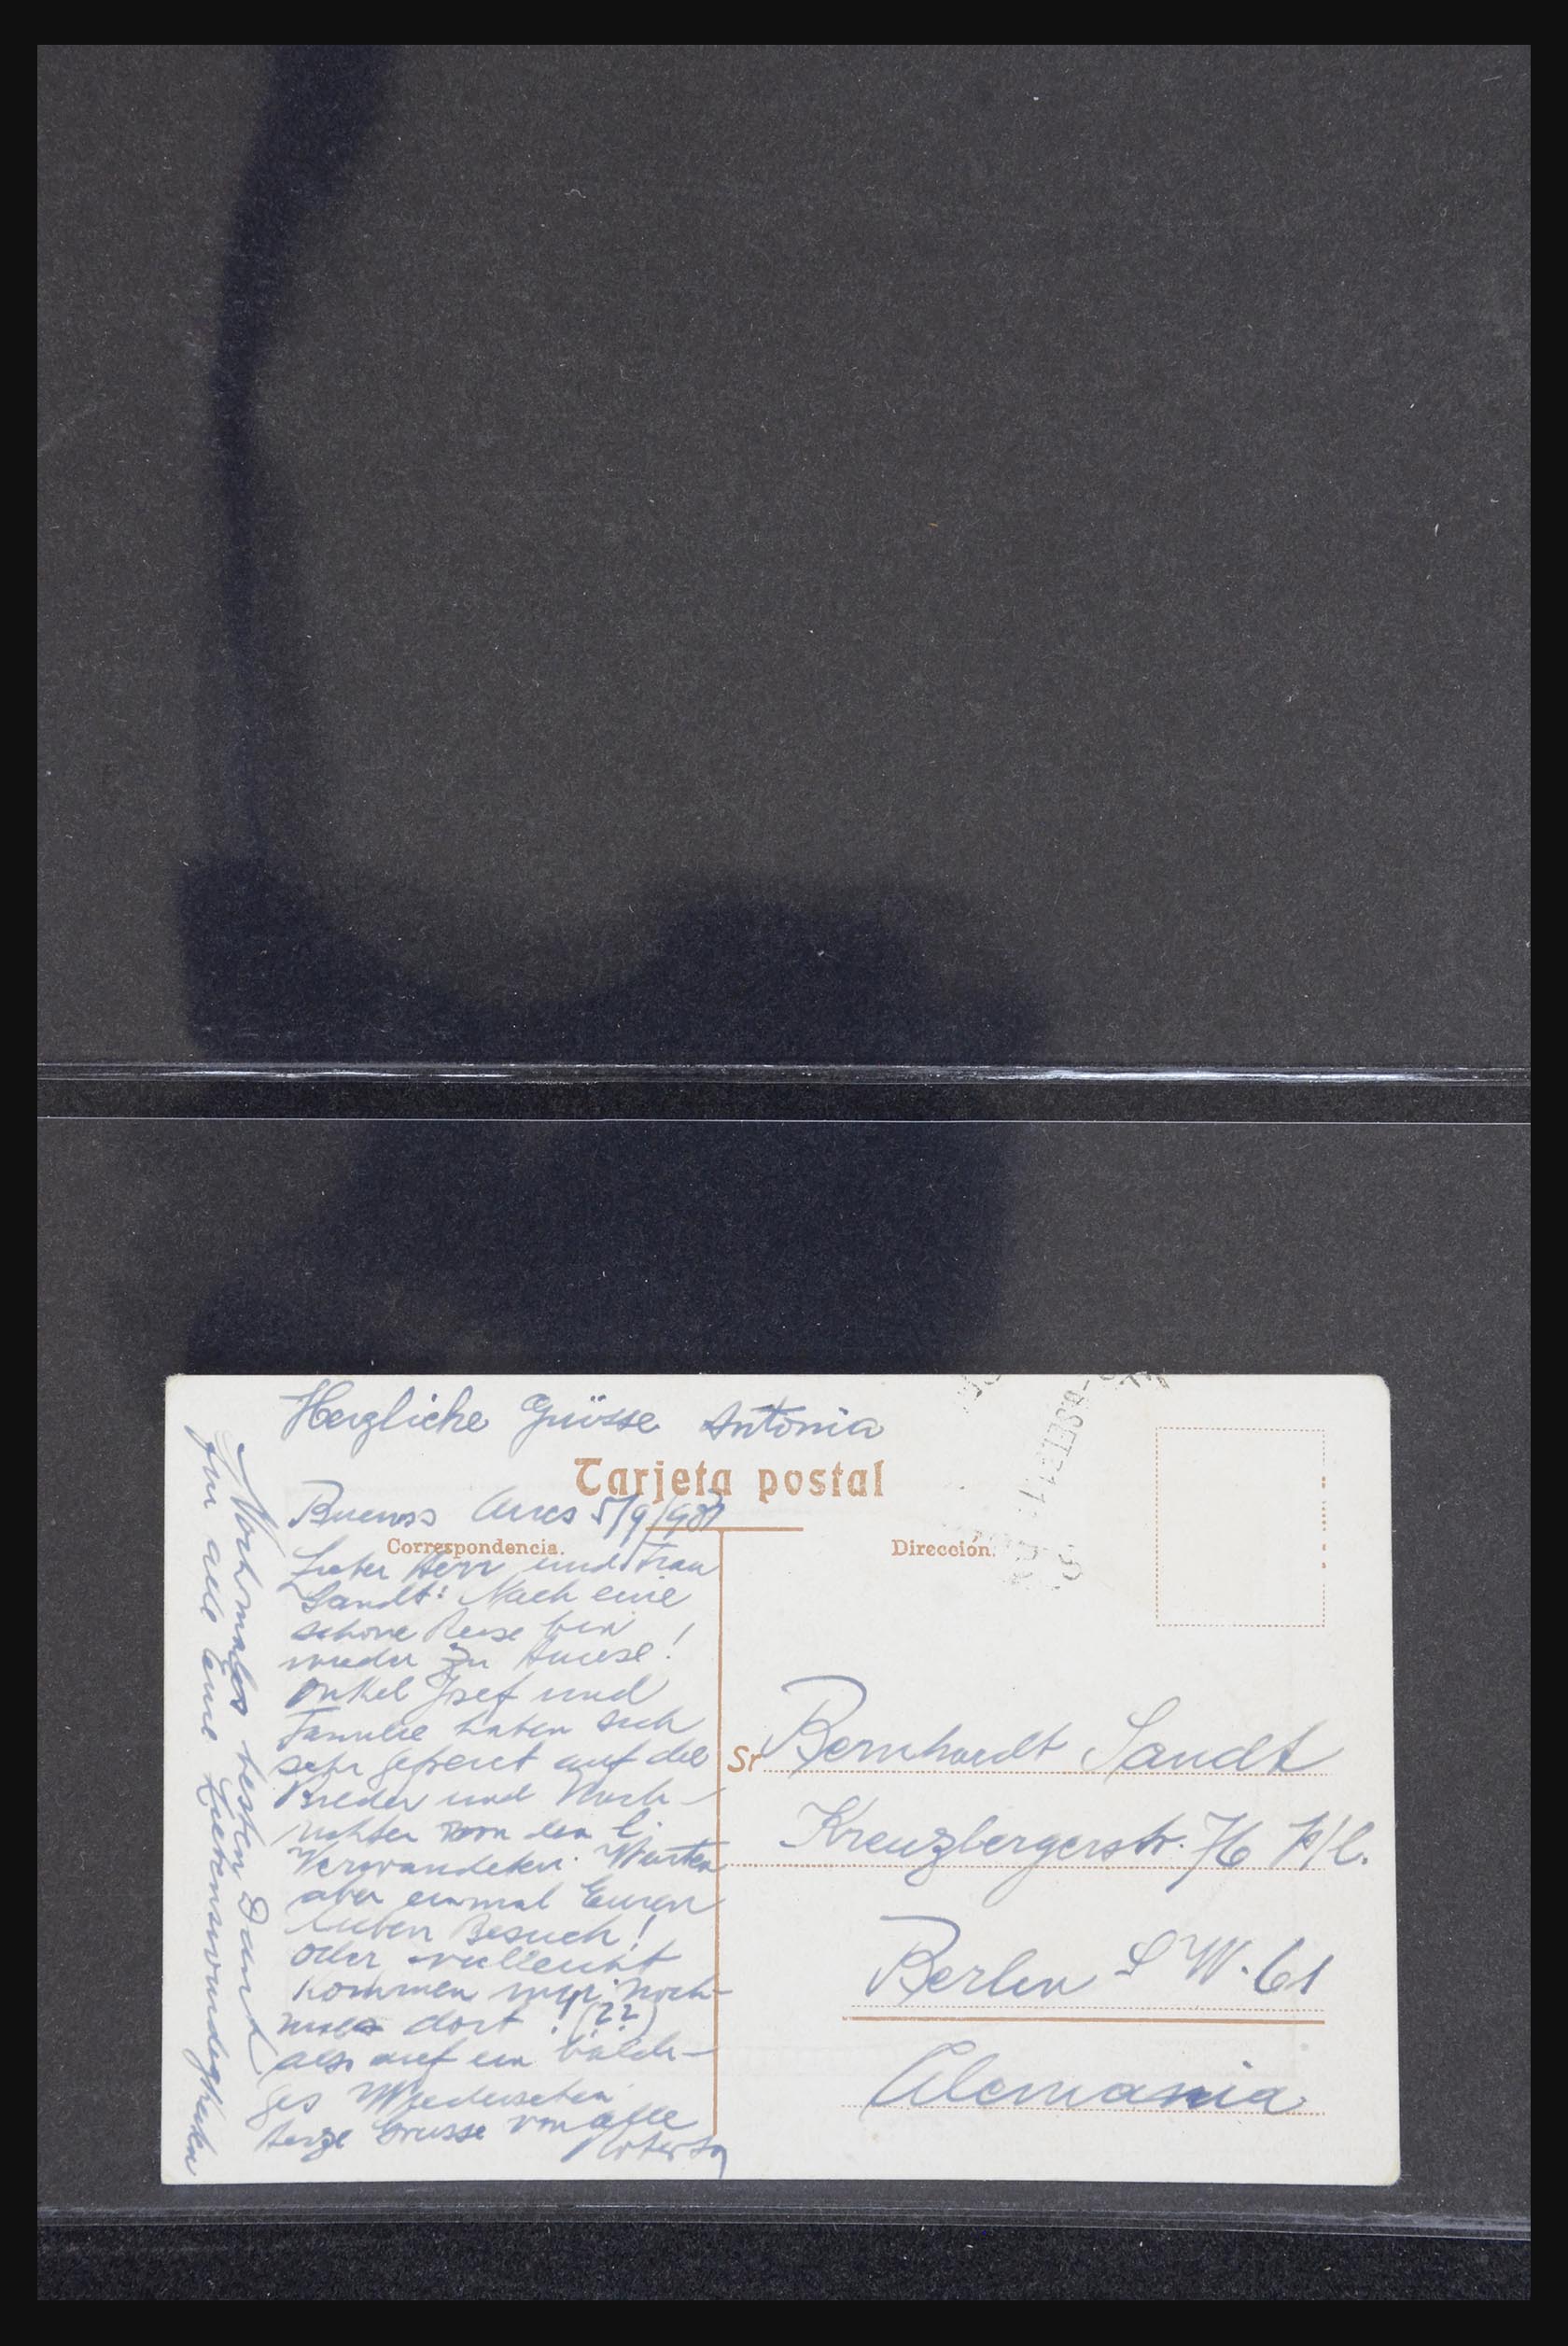 Herzliche Grüsse Antonia
Tarjeta postal
Buenos Aires 5/9/
Correspondencia.
Dirección.
Lieber Herr und Frau
Sandt: Nach eine
schöne Reise bin
wieder zu Hause!
Onkel Josef und
Familie haben sich
sehr gefreut auf die
Bilder und Nach-
richten von den l.
Verwandeten. Warten
aber einmal Euren
lieben Besuch!
Oder vielleicht
kommen wir noch-
mals dort! (??)
also auf ein bäldi-
ges Wiedersehen
Herzl Grüsse von alle
Nochmals besten Dank
für alle Eure Liebenswürdigkeiten
Sr Bernhardt Sandt
Kreuzbergerstr. 76
Berlin S W. 61
Alemania